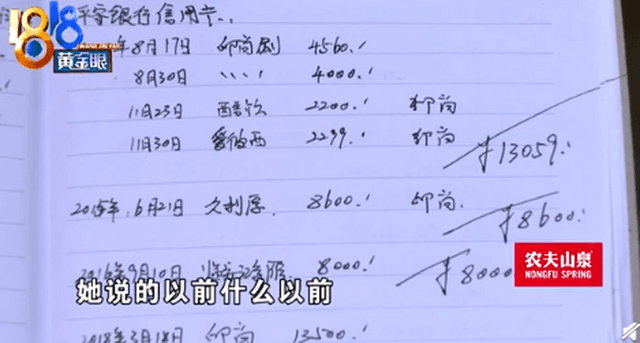 平安银行信用卡
1818
黄金眼
年8月17日 印尚刷 4560.
8月30日 〃〃 4000.
11月23日 酷饮 2200. 印尚
11月30日 爱彼西 2299. 印尚 ¥13059.
2015年.6月21日 久利原. 8600. 印尚. ¥8600.
2016年9月10日 8000. ¥8000
农夫山泉
NONGFU SPRING
她说的以前什么以前
2018年3月18日 印尚 13500.